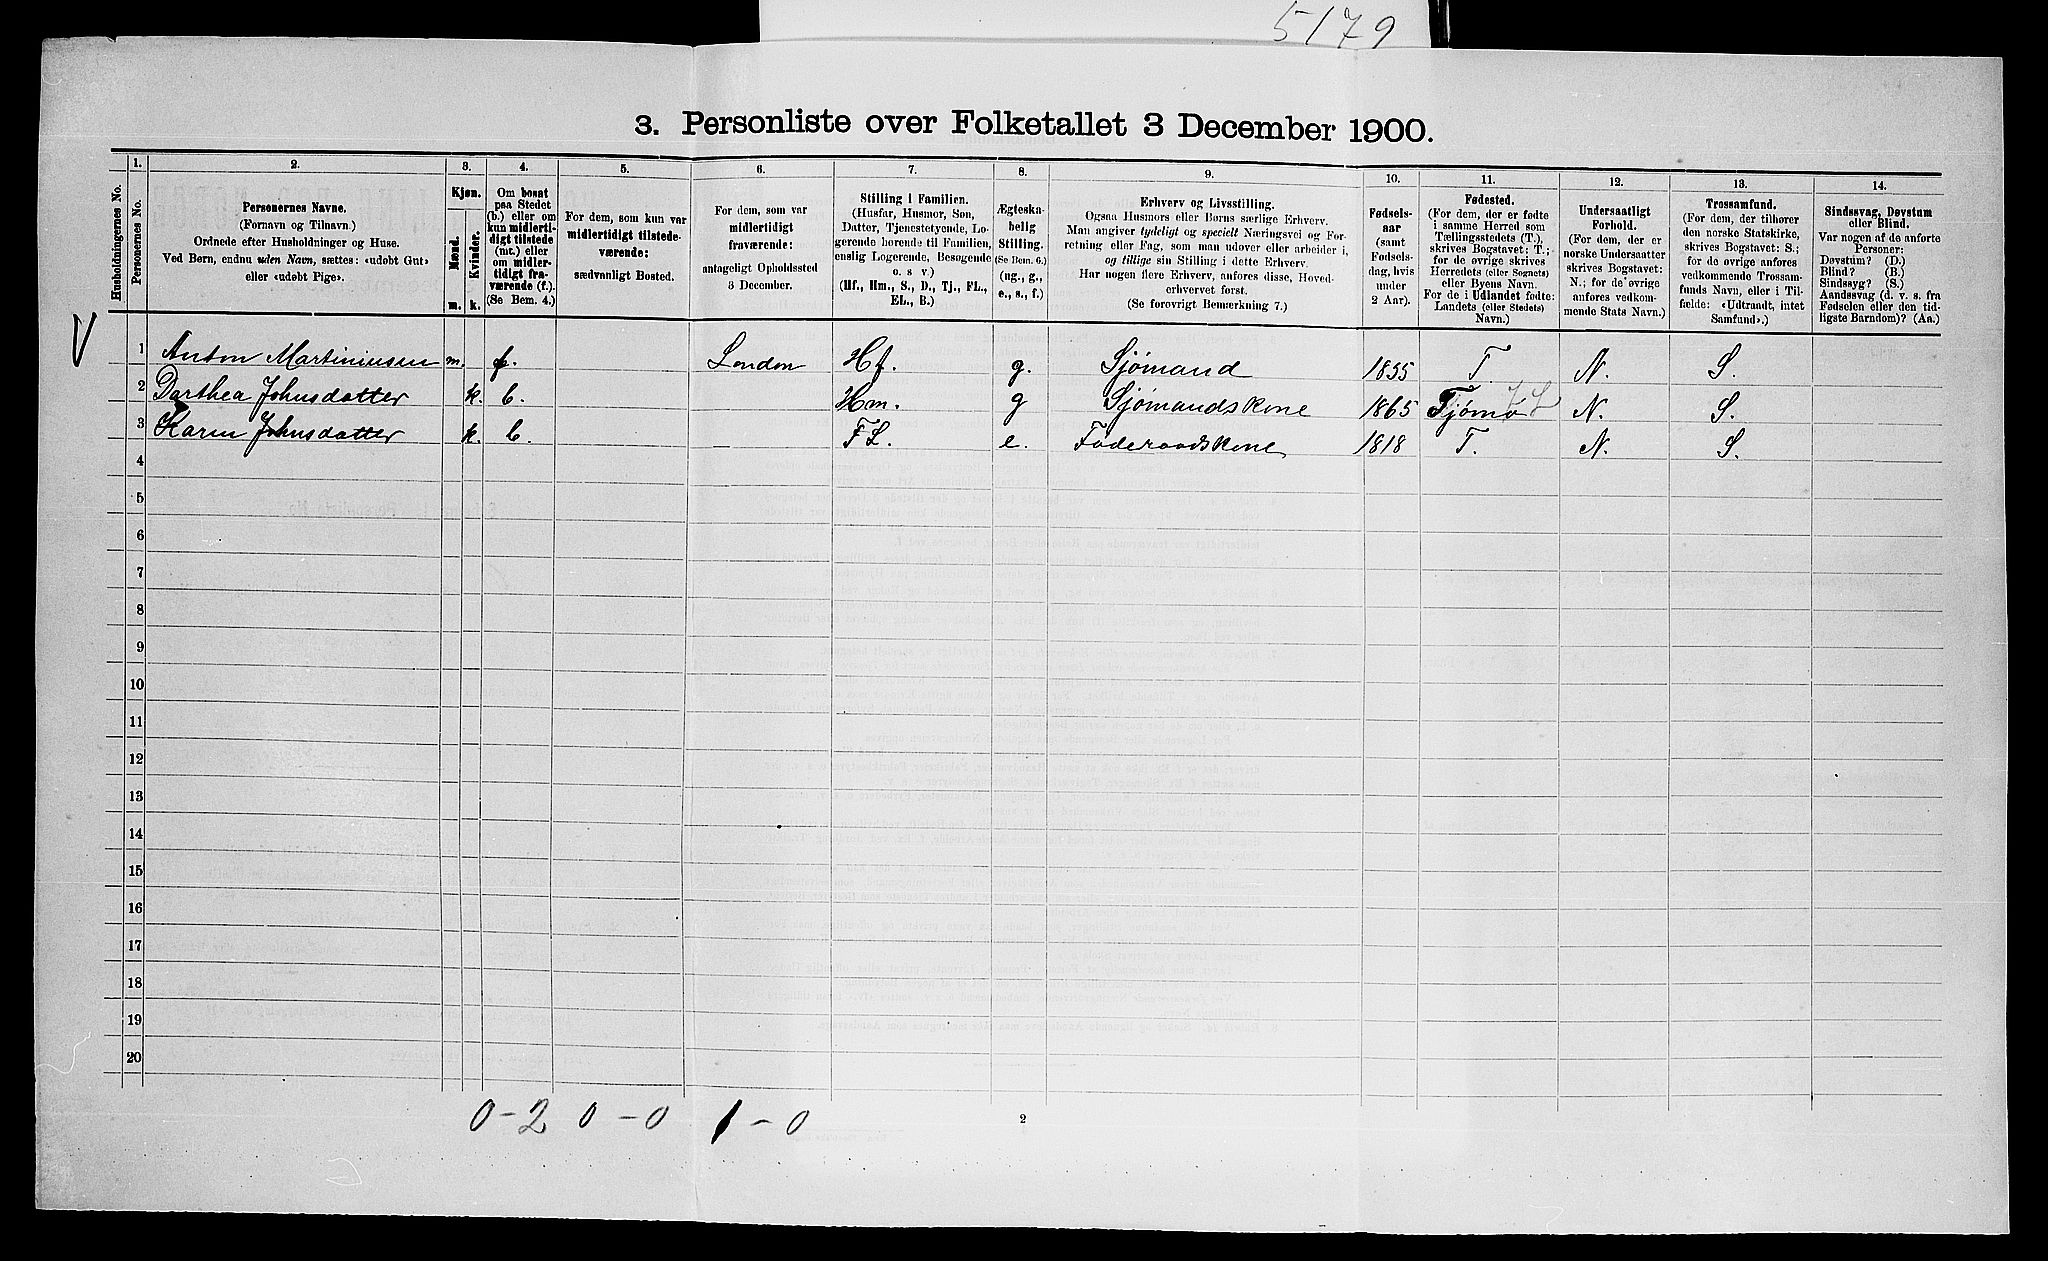 5179
3. Personliste over Folketallet 3 December 1900.
Husholdningernes No.
1.
Personernes No.
2.
Personernes Navne.
(Fornavn og Tilnavn.)
Ordnede efter Husholdninger og Huse.
Ved Børn, endnu uden Navn, sættes: «udøbt Gut»
eller «udøbt Pige».
3.
Kjøn.
Mænd.
Kvinder.
m. k.
4.
Om bosat
paa Stedet
(b.) eller om
kun midlerti-
digt tilstede
(mt.) eller
om midler-
tidigt fra-
værende (f.).
(Se Bem. 4.)
5.
For dem, som kun var
midlertidigt tilstede-
værende:
sædvanligt Bosted.
6.
For dem, som var
midlertidigt
fraværende:
antageligt Opholdssted
3 December.
7.
Stilling i Familien.
(Husfar, Husmor, Søn,
Datter, Tjenestetyende, Lo-
gerende hørende til Familien,
enslig Logerende, Besøgende
o. s v.)
(Hf., Hm., S., D., Tj., FL.,
EL., B.)
8.
Ægteska-
belig
Stilling.
(Se Bem. 6.)
(ug., g.,
e., s., f.)
9.
Erhverv og Livsstilling.
Ogsaa Husmors eller Børns særlige Erhverv.
Man angiver tydeligt og specielt Næringsvei og For-
retning eller Fag, som man udøver eller arbeider i,
og tillige sin Stilling i dette Erhverv.
Har nogen flere Erhverv, anføres disse, Hoved-
erhvervet først.
(Se forøvrigt Bemærkning 7.)
10.
Fødsels-
aar
(samt
Fødsels-
dag, hvis
under
2 Aar).
11.
Fødested.
(For dem, der er fødte
i samme Herred som
Tællingsstedets (T.),
skrives Bogstavet: T.;
for de øvrige skrives
Herredets (eller Sognets)
eller Byens Navn.
For de i Udlandet fødte:
Landets (eller Stedets)
Navn.)
12.
Undersaatligt
Forhold.
(For dem, der er
norske Undersaatter
skrives Bogstavet:
N.; for de øvrige
anføres vedkom-
mende Stats Navn.)
13.
Trossamfund.
(For dem, der tilhører
den norske Statskirke,
skrives Bogstavet: S.;
for de øvrige anføres
vedkommende Trossam-
funds Navn, eller i Til-
fælde: «Udtraadt, intet
Samfund».)
14.
Sindssvag, Døvstum
eller Blind.
Var nogen af de anførte
Personer:
Døvstum? (D.)
Blind? (B.)
Sindssyg? (S.)
Aandssvag (d. v. s. fra
Fødselen eller den tid-
ligste Barndom)? (Aa.)
V
1 Anton Martiniussen m. f. London Hf. g. Sjømand 1855 T. N. S.
2 Dorthea Johnsdatter k. b. Hm. g Sjømandskone 1865 Tjømø N. S.
3 Karen Johnsdatter k. b. FL. e. Føderaadskone 1818 T. N. S.
4
5
6
7
8
9
10
11
12
13
14
15
16
17
18
19
20
0-2 0-0 1-0
2